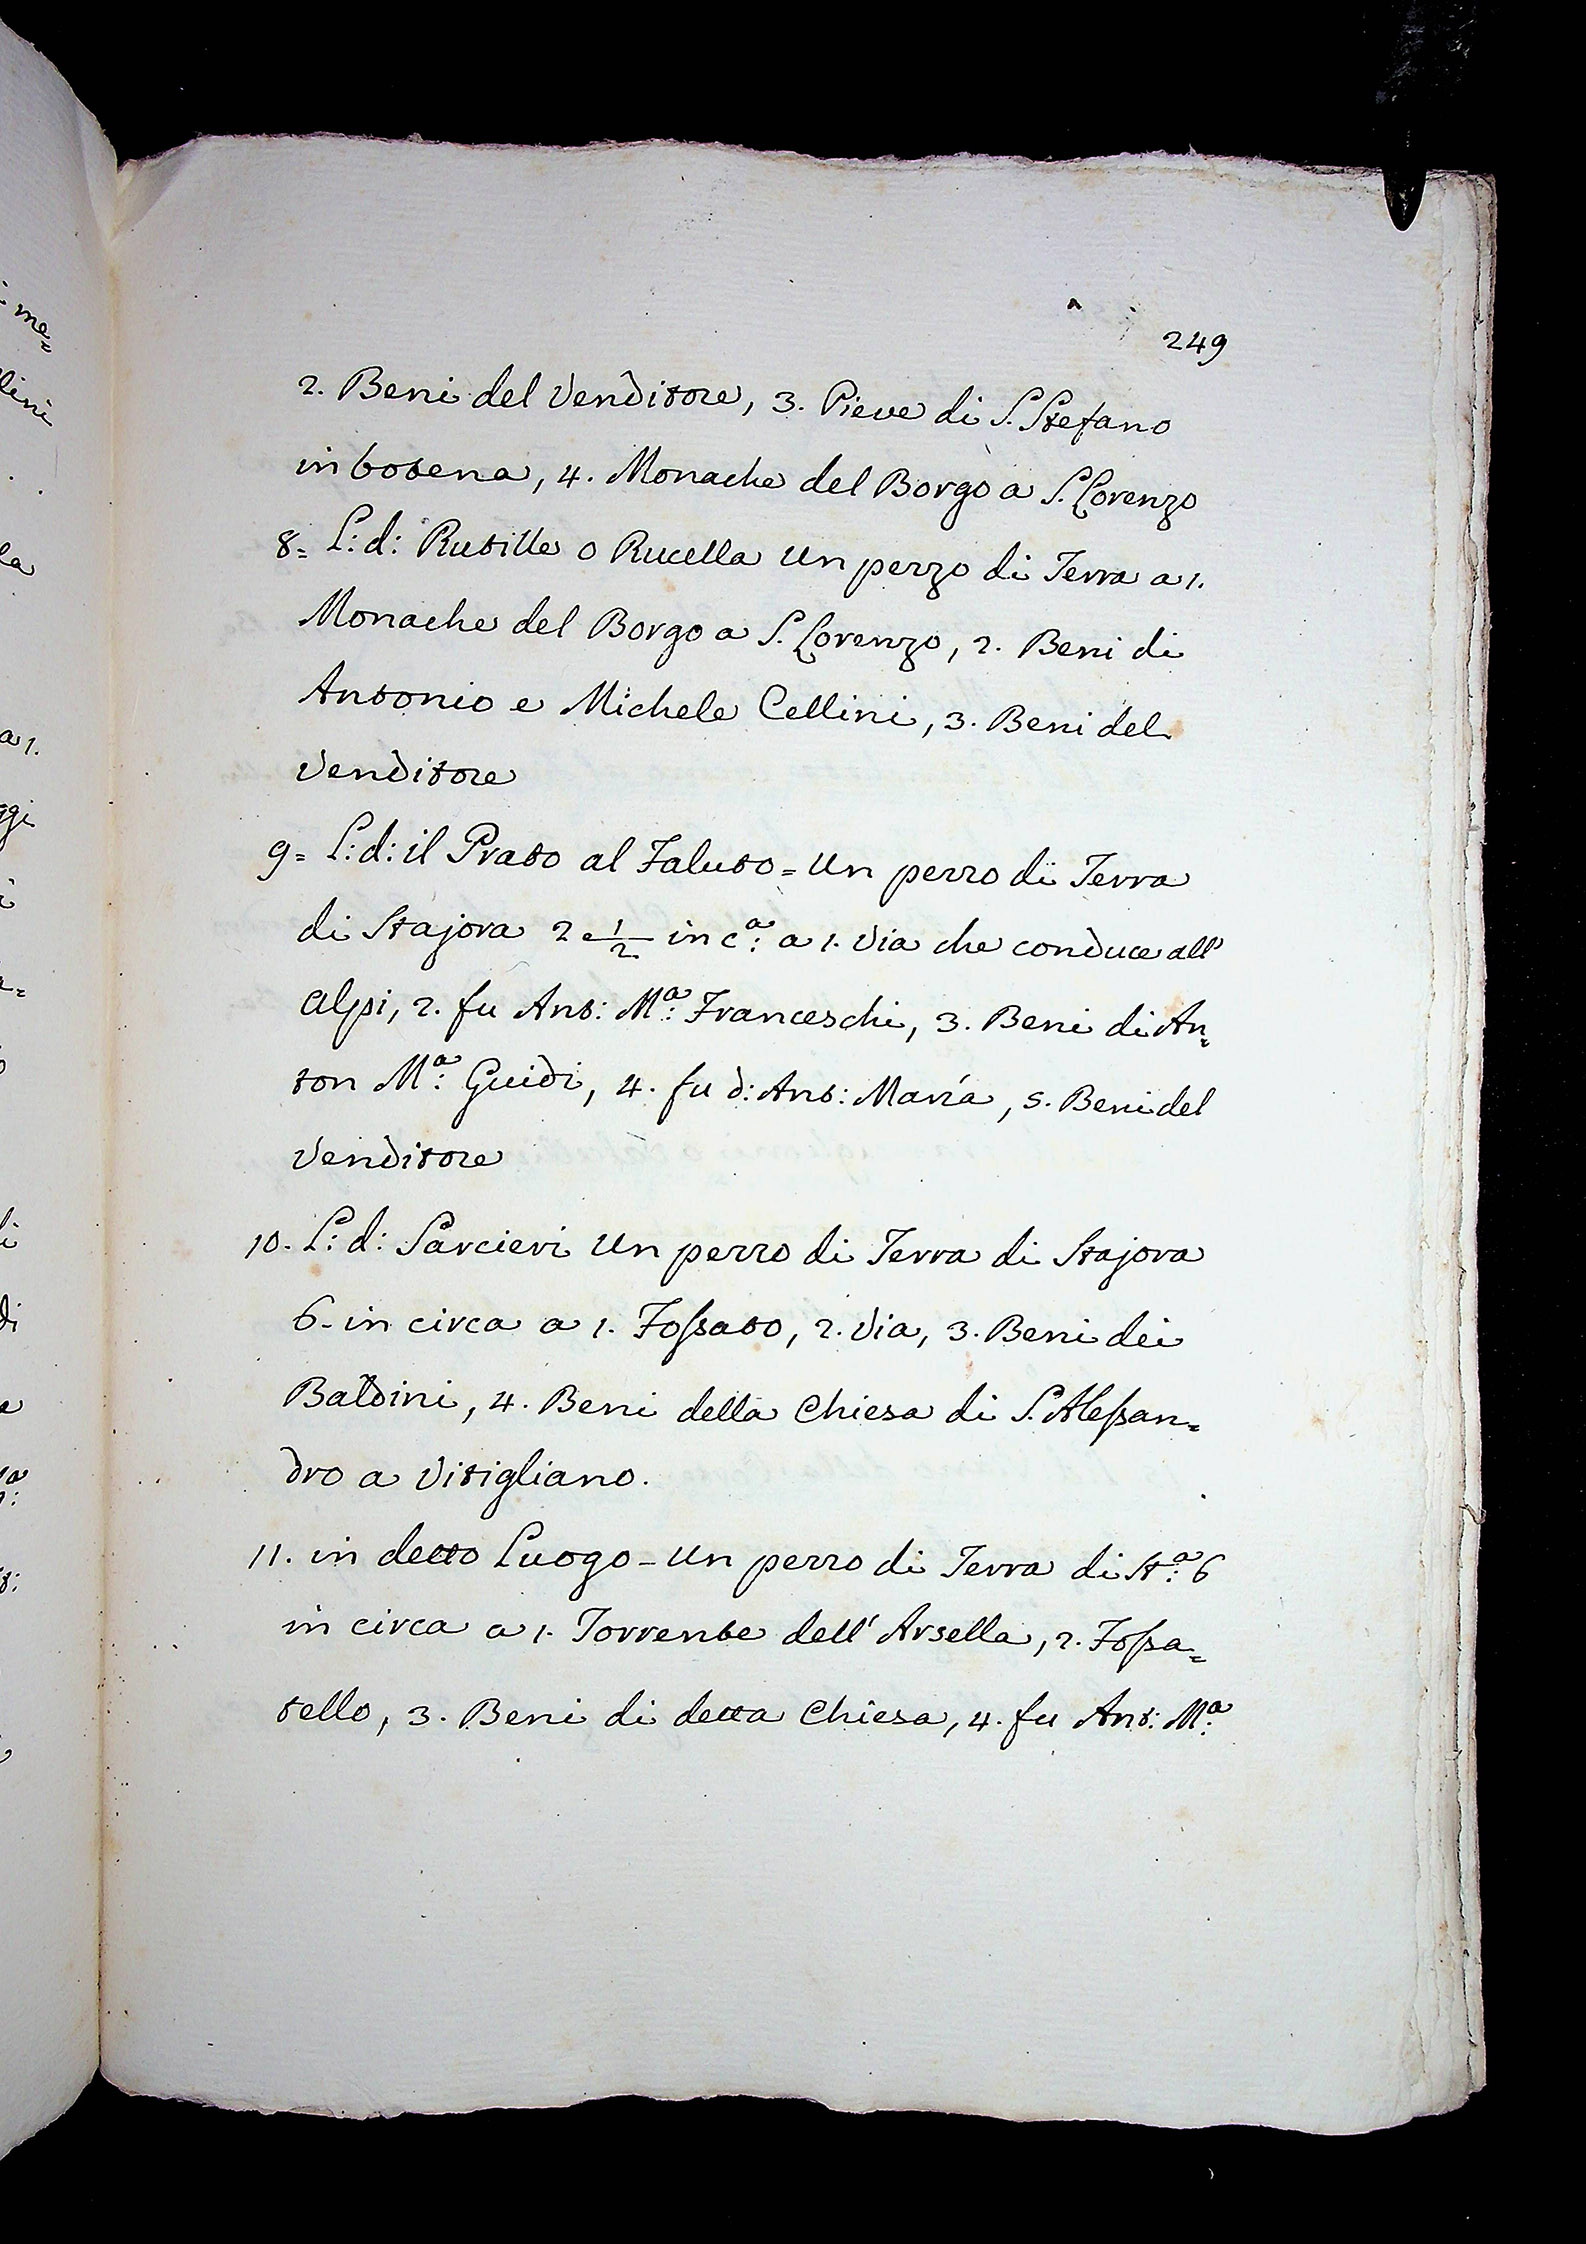 249
2. Beni del Venditore, 3. Pieve di S. Stefano
in botena, 4. Monache del Borgo a S. Lorenzo
8= L: d: Rutille o Rucella Un pezzo di Terra a 1.
Monache del Borgo a S. Lorenzo, 2. Beni di
Antonio e Michele Cellini, 3. Beni del
Venditore
9= L: d: il Prato al Faluto = Un pezzo di Terra
di Stajora 2 e 1/2 in cᵃ: a 1. Via che conduce all'
Alpi, 2. fu Ant: Mᵃ: Franceschi, 3. Beni di An=
ton Mᵃ: Guidi, 4. fu d: Ant: Maria, 5. Beni del
Venditore
10. L: d: Sarcieri Un pezzo di Terra di Stajora
6- in circa a 1. Fossato, 2. Via, 3. Beni dei
Baldini, 4. Beni della Chiesa di S. Alessan=
dro a Vitigliano.
11. in detto Luogo - Un pezzo di Terra di Stᵃ: 6
in circa a 1. Torrente dell' Arsella, 2. Fossa=
tello, 3. Beni di detta Chiesa, 4. fu Ant: Mᵃ:
me=
lini
la
a 1.
ggi
di